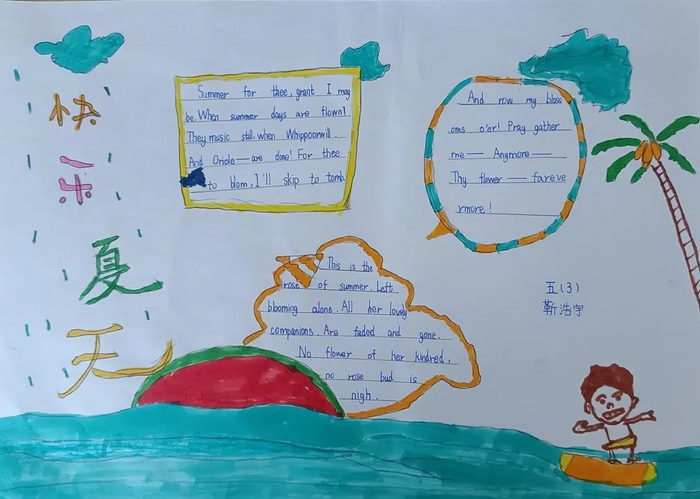 快
乐
夏
天
Summer for thee, grant I may
be. When summer days are flown!
They music still, when Whippoorwill.
And Oriole — are done! For thee
to blom, I'll skip to tomb
And row my bloss
oms o'er! Pray gather
me — Anymore —
Thy flower — fareve
rmore!
This is the
rose of summer. Left
blooming alone. All her lovely
companions. Are faded and gone.
No flower of her kindred,
no rose bud is
nigh.
五(3)
靳浩宇